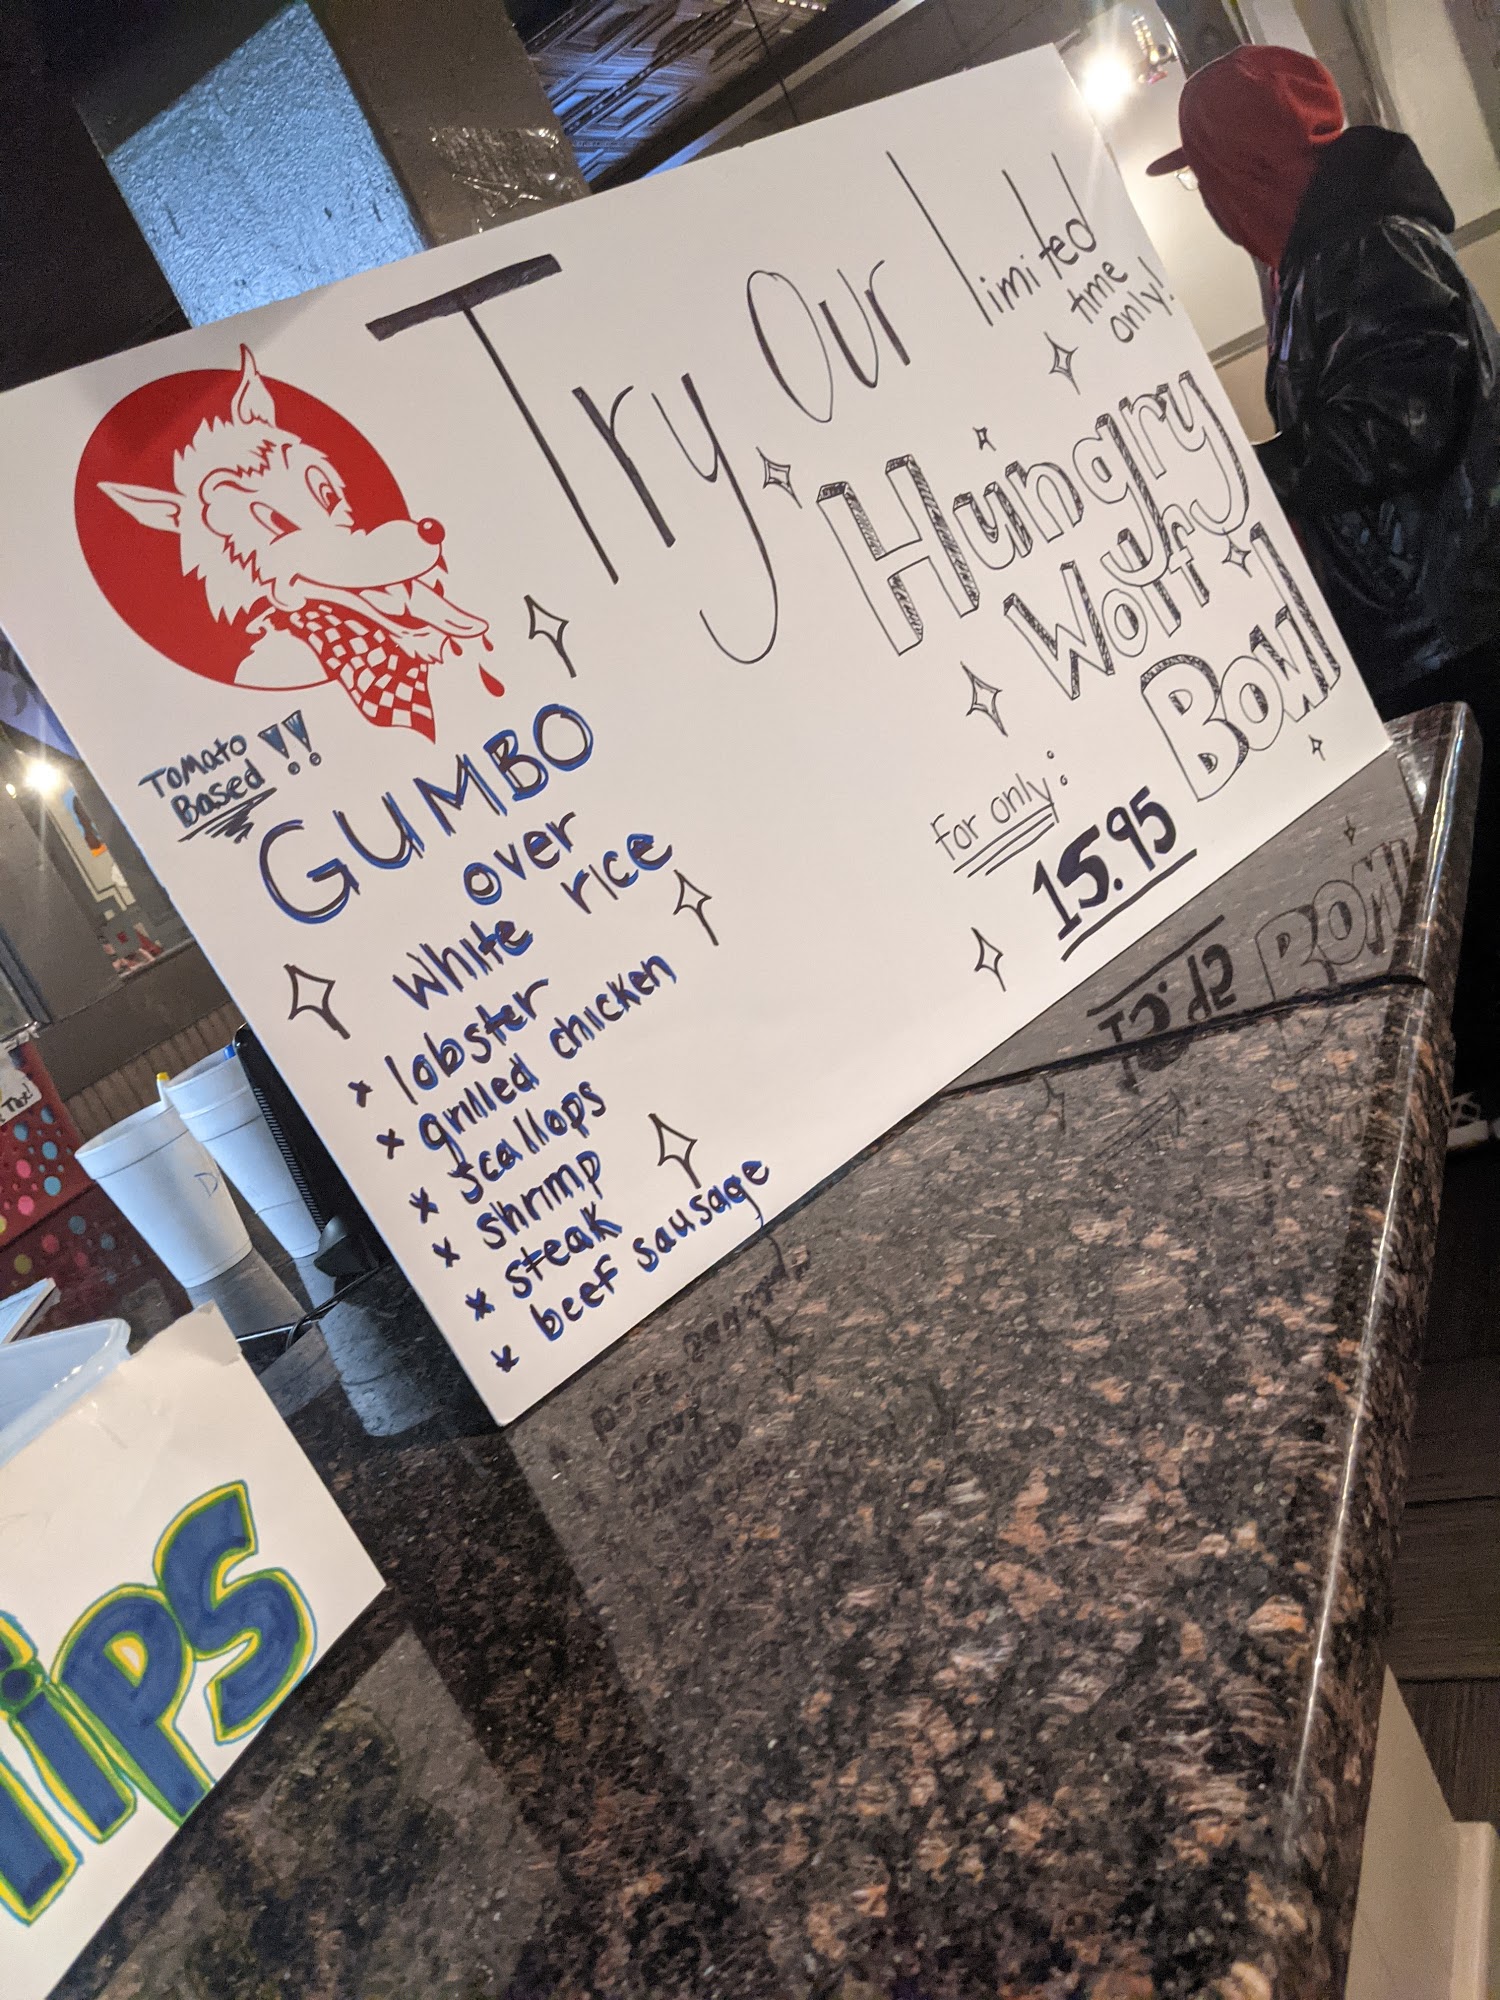 Try Our limited
time
only!
Hungry
Wolf
Bowl
for only:
15.95
Tomato
Based!!
GUMBO
over
white rice
x lobster
x grilled chicken
x scallops
x shrimp
x steak
x beef sausage
Tips